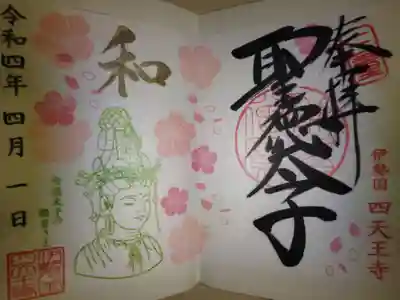 奉拝
聖徳太子
伊勢国 四天王寺
和
令和四年四月一日